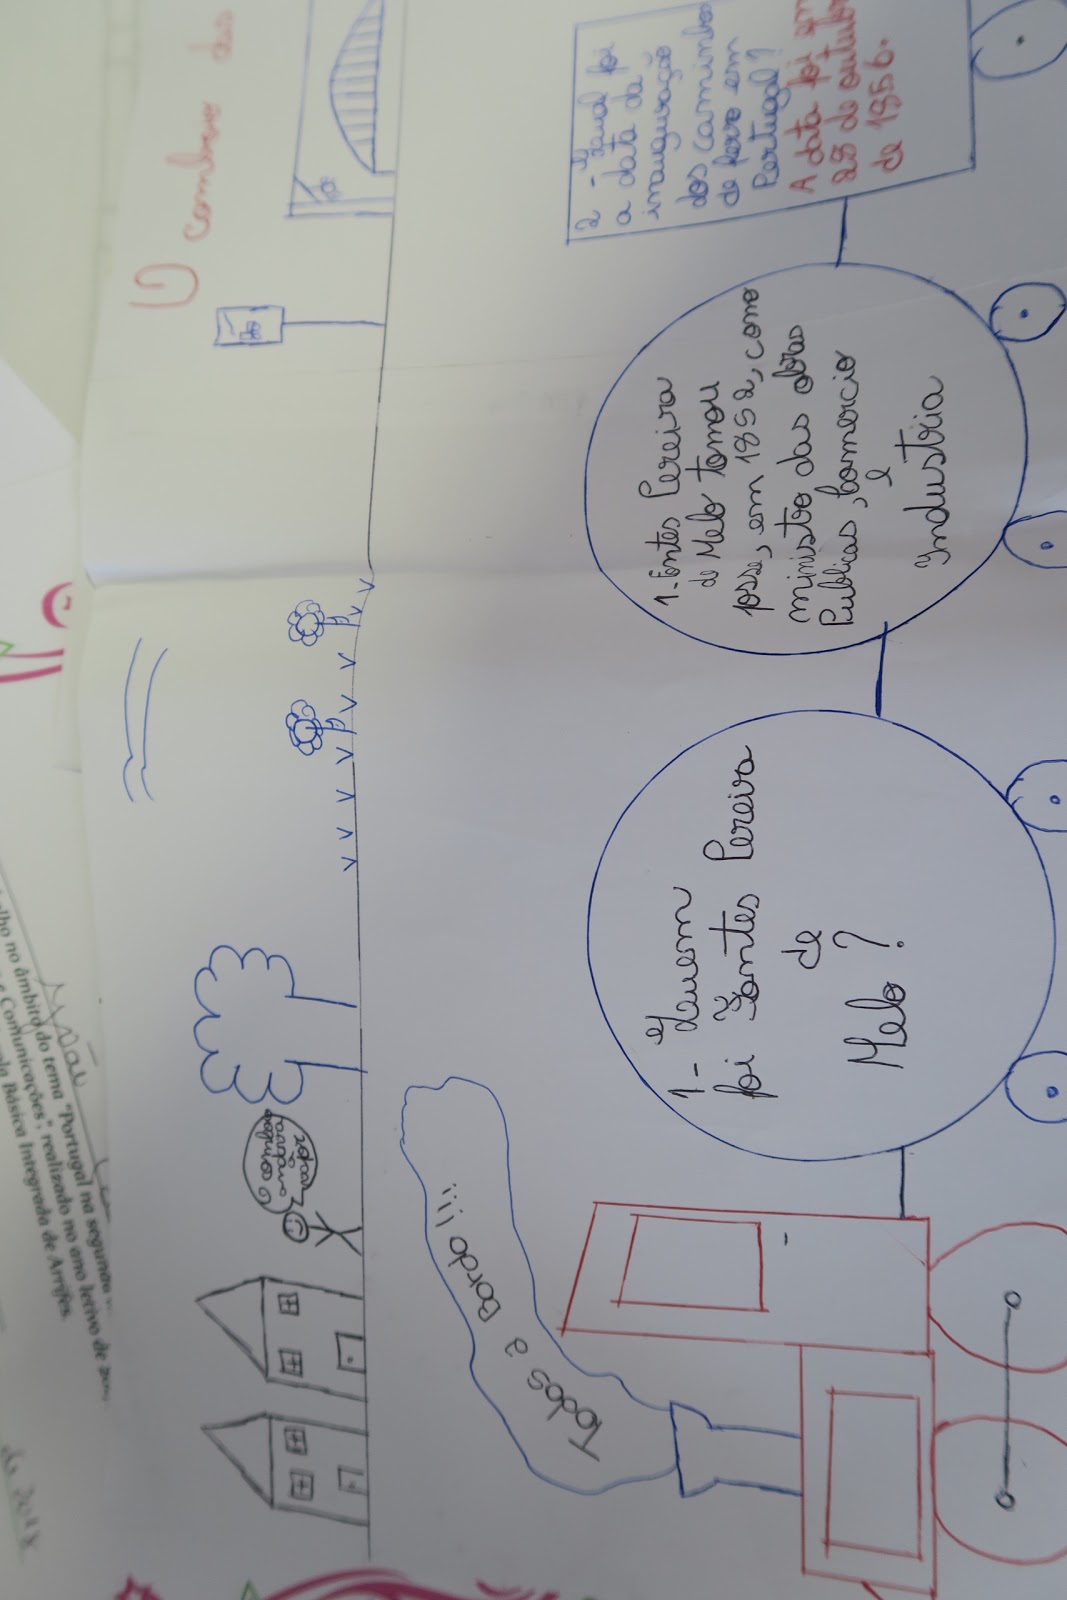 O comboio das
1- Quem
foi Fontes Pereira
de
Melo ?
1- Fontes Pereira
de Melo tomou
posse, em 1852, como
ministro das obras
Publicas, Comercio
e
Industria
2 - Qual foi
a data da
inauguração
dos caminhos
de ferro em
Portugal?
A data foi em
28 de outubro
de 1856.
Todos a Bordo!!!
no âmbito do tema "Portugal na segunda
e Comunicações", realizado no ano letivo de
Básica Integrada de Arrifes.